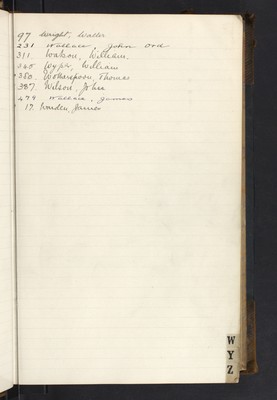 97 Wright, Walter
231 Wallace, John Ord
311 Watson, William.
William
380. Wotherspoon, Thomas
387. Wilson, John
479 Wallace, James
17. Warden, James
W
Y
Z